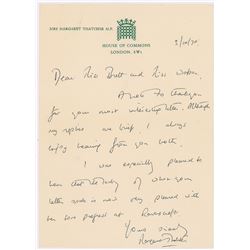 MRS MARGARET THATCHER M.P.
HOUSE OF COMMONS
LONDON, SW1
Dear Miss and Miss
A note to thank you
for your most letter. Although
my replies are brief, I always
enjoy hearing from you both.
I was especially pleased to
hear that the lady of whom your
letter is now very pleased with
her
Yours sincerely
Margaret Thatcher